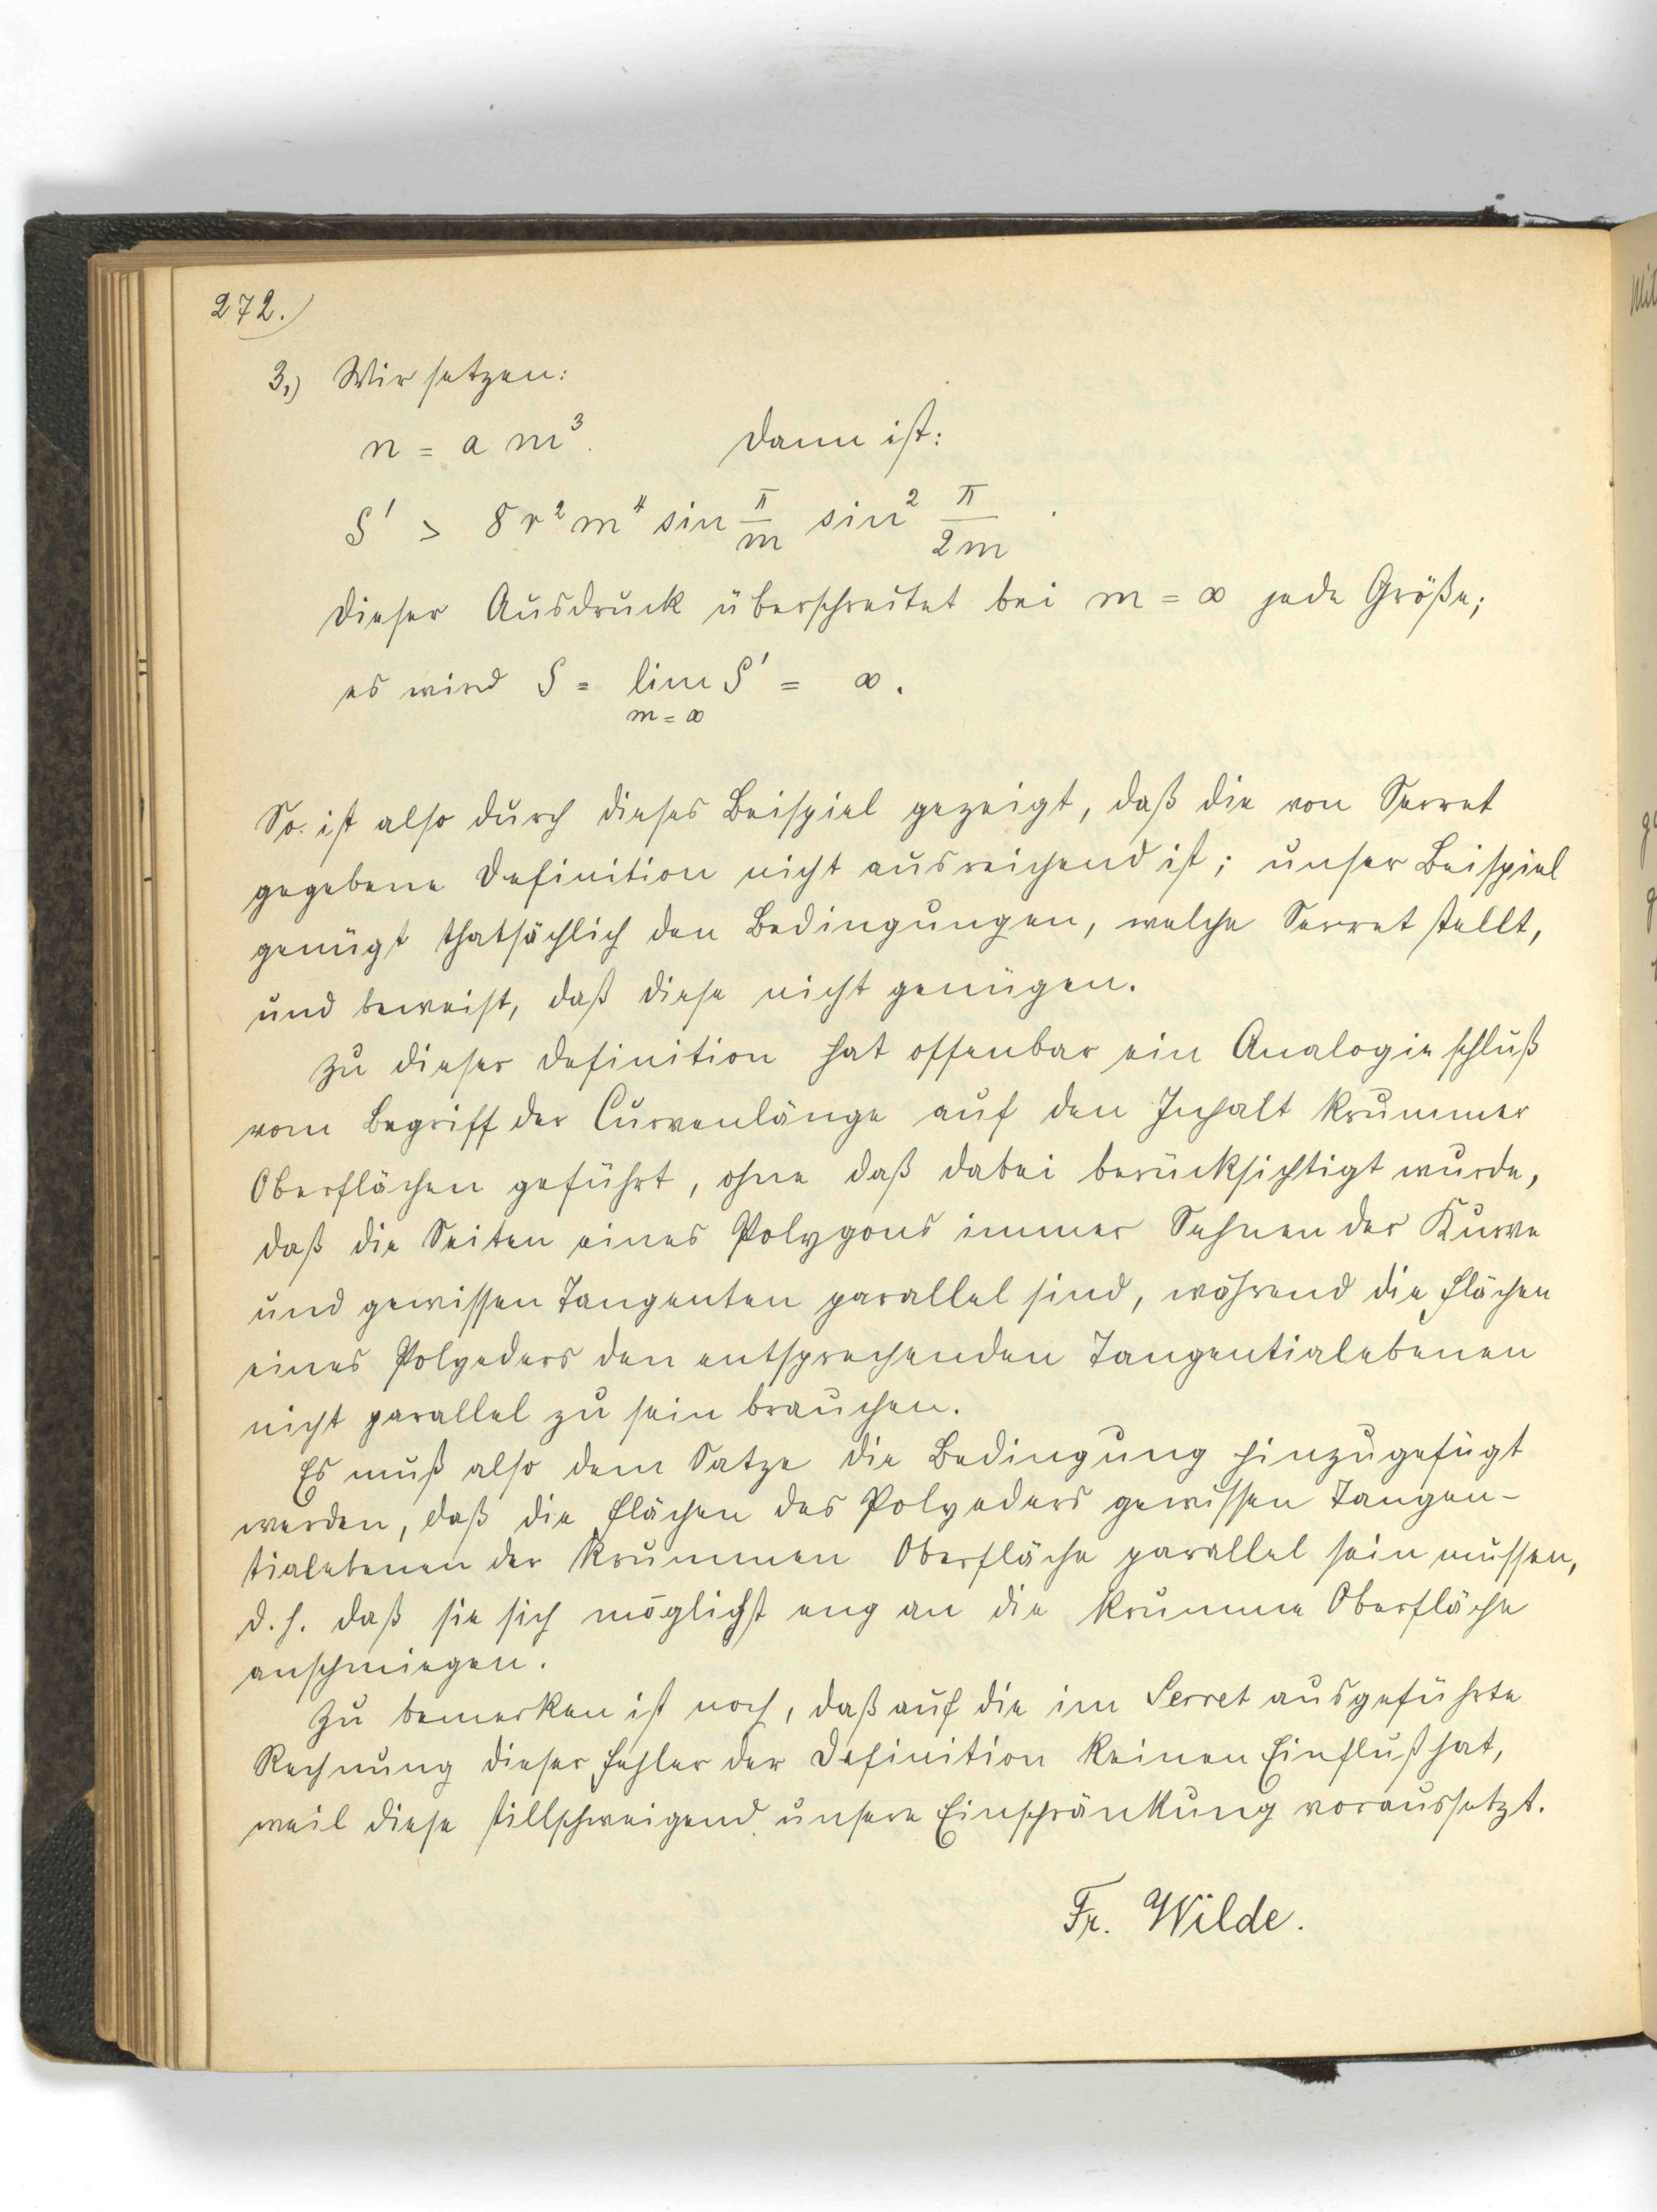 272.)
3,) Wir setzen:
n = a m³. Dann ist:
S' > 8 r² m⁴ sin π/m sin² π/2m .
Dieser Ausdruck überschreitet bei m = ∞ jede Größe;
es wird S = lim S' = ∞.
m = ∞
So ist also durch dieses Beispiel gezeigt, daß die von Serret
gegebene Definition nicht ausreichend ist; unser Beispiel
genügt thatsächlich den Bedingungen, welche Serret stellt,
und beweist, daß diese nicht genügen.
Zu dieser Definition hat offenbar ein Analogieschluß
vom Begriff der Curvenlänge auf den Inhalt krummer
Oberflächen geführt, ohne daß dabei berücksichtigt wurde,
daß die Seiten eines Polygons immer Sehnen der Kurve
und gewissen Tangenten parallel sind, während die Flächen
eines Polyeders den entsprechenden Tangentialebenen
nicht parallel zu sein brauchen.
Es muß also dem Satze die Bedingung hinzugefügt
werden, daß die Flächen des Polyeders gewissen Tangen-
tialebenen der krummen Oberfläche parallel sein müssen,
d. h. daß sie sich möglichst eng an die krumme Oberfläche
anschmiegen.
Zu bemerken ist noch, daß auf die im Serret ausgeführte
Rechnung dieser Fehler der Definition keinen Einfluß hat,
weil diese stillschweigend unsere Einschränkung voraussetzt.
Fr. Wilde.